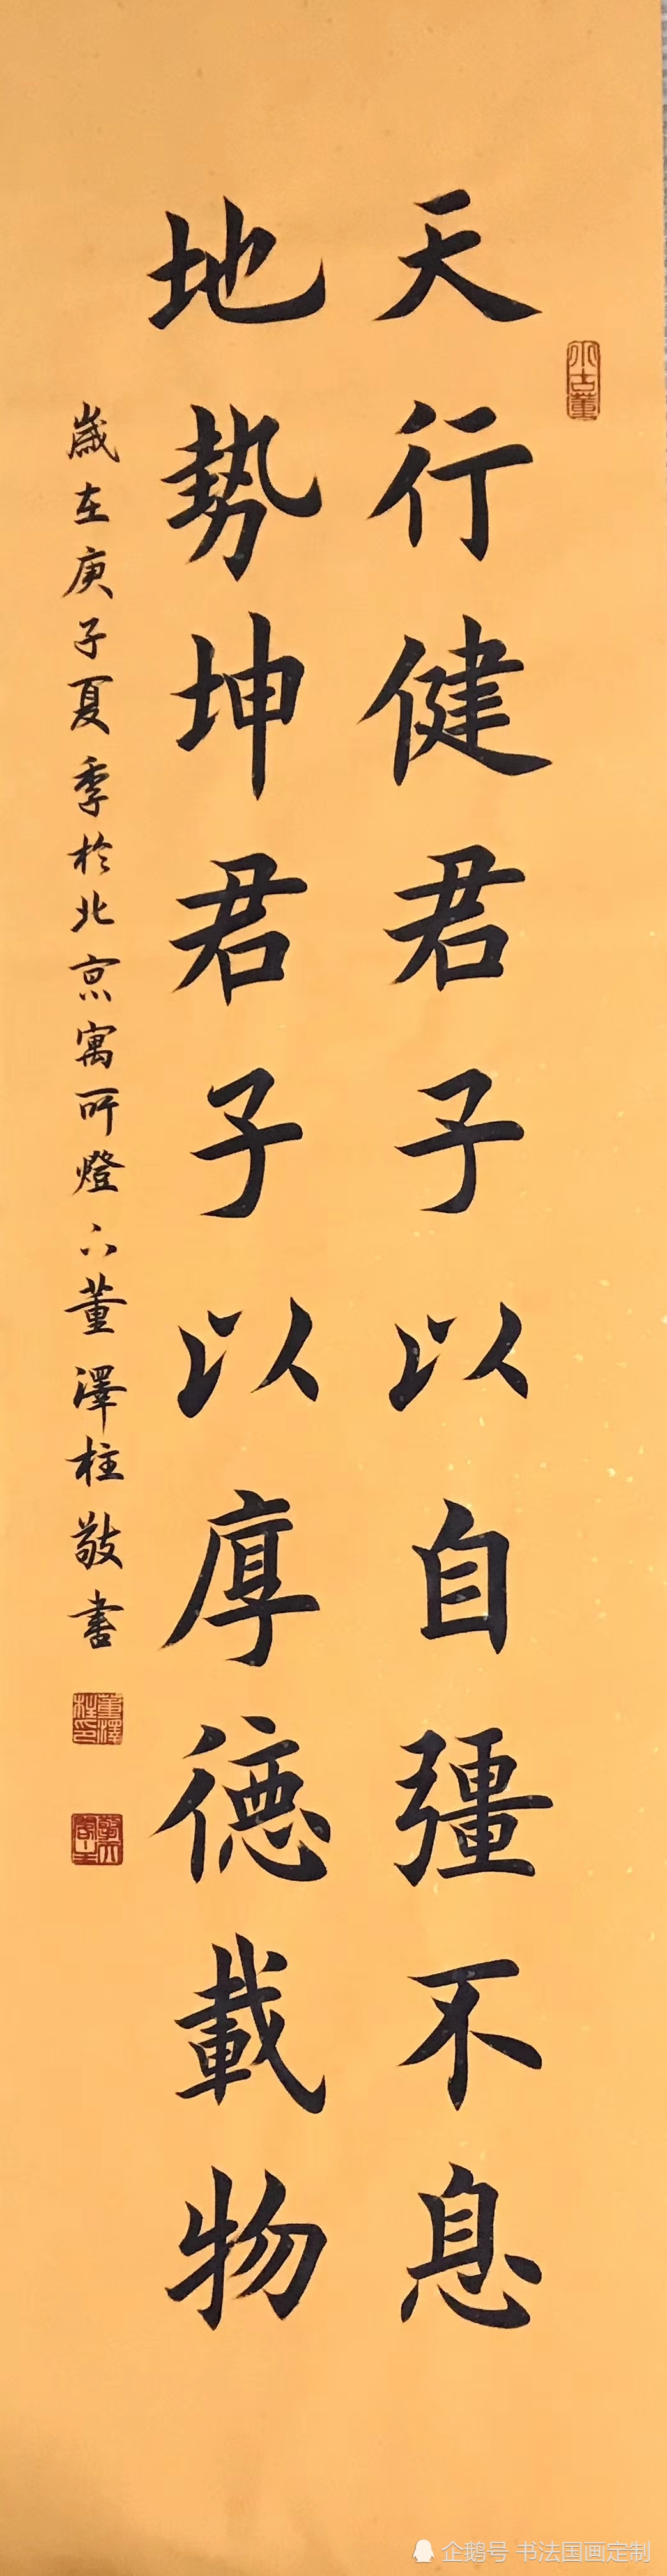 天行健君子以自彊不息
地勢坤君子以厚德載物
歳在庚子夏季於北京寓所燈下董澤柱敬書
董澤柱印
企鹅号 书法国画定制